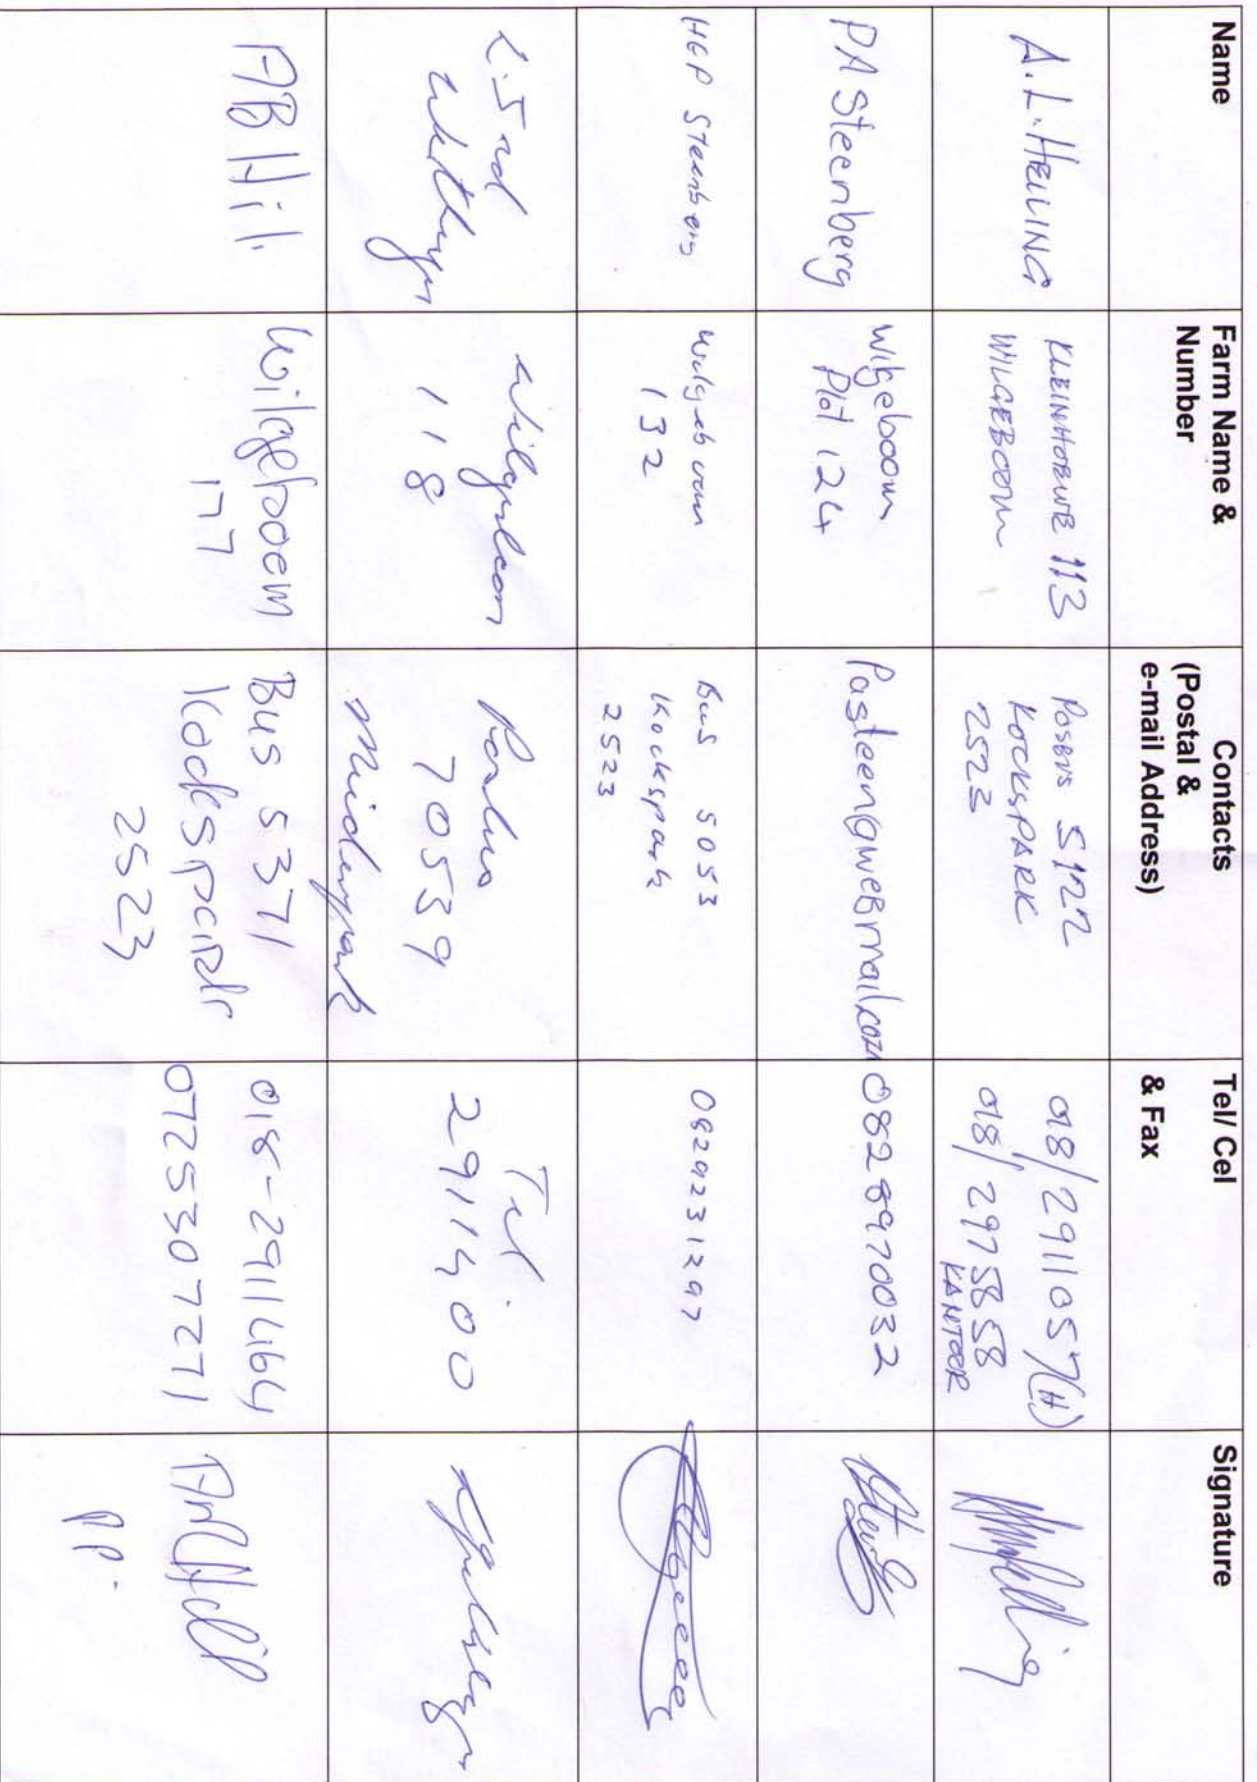 Name
Farm Name &
Number
Contacts
(Postal &
e-mail Address)
Tel/ Cel
& Fax
Signature
A.L. HEILING
KLEINHOEWE 113
WILGEBOOM
POSBUS 5122
KOCKSPARK
2523
018/2911057(H)
018/2975858
KANTOOR
PA Steenberg
Wilgeboom
Plot 124
Pasteen@webmail.co.za
0828970032
HGP Steenberg
Wilgeboom
132
Bus 5053
Kockspark
2523
0829231297
Wilgeboom
118
Posbus
7 0539
Miederpark
Tel.
2911400
AB Hill
Wilgeboem
177
Bus 5371
Kockspark
2523
018-2911464
0725307271
PP.